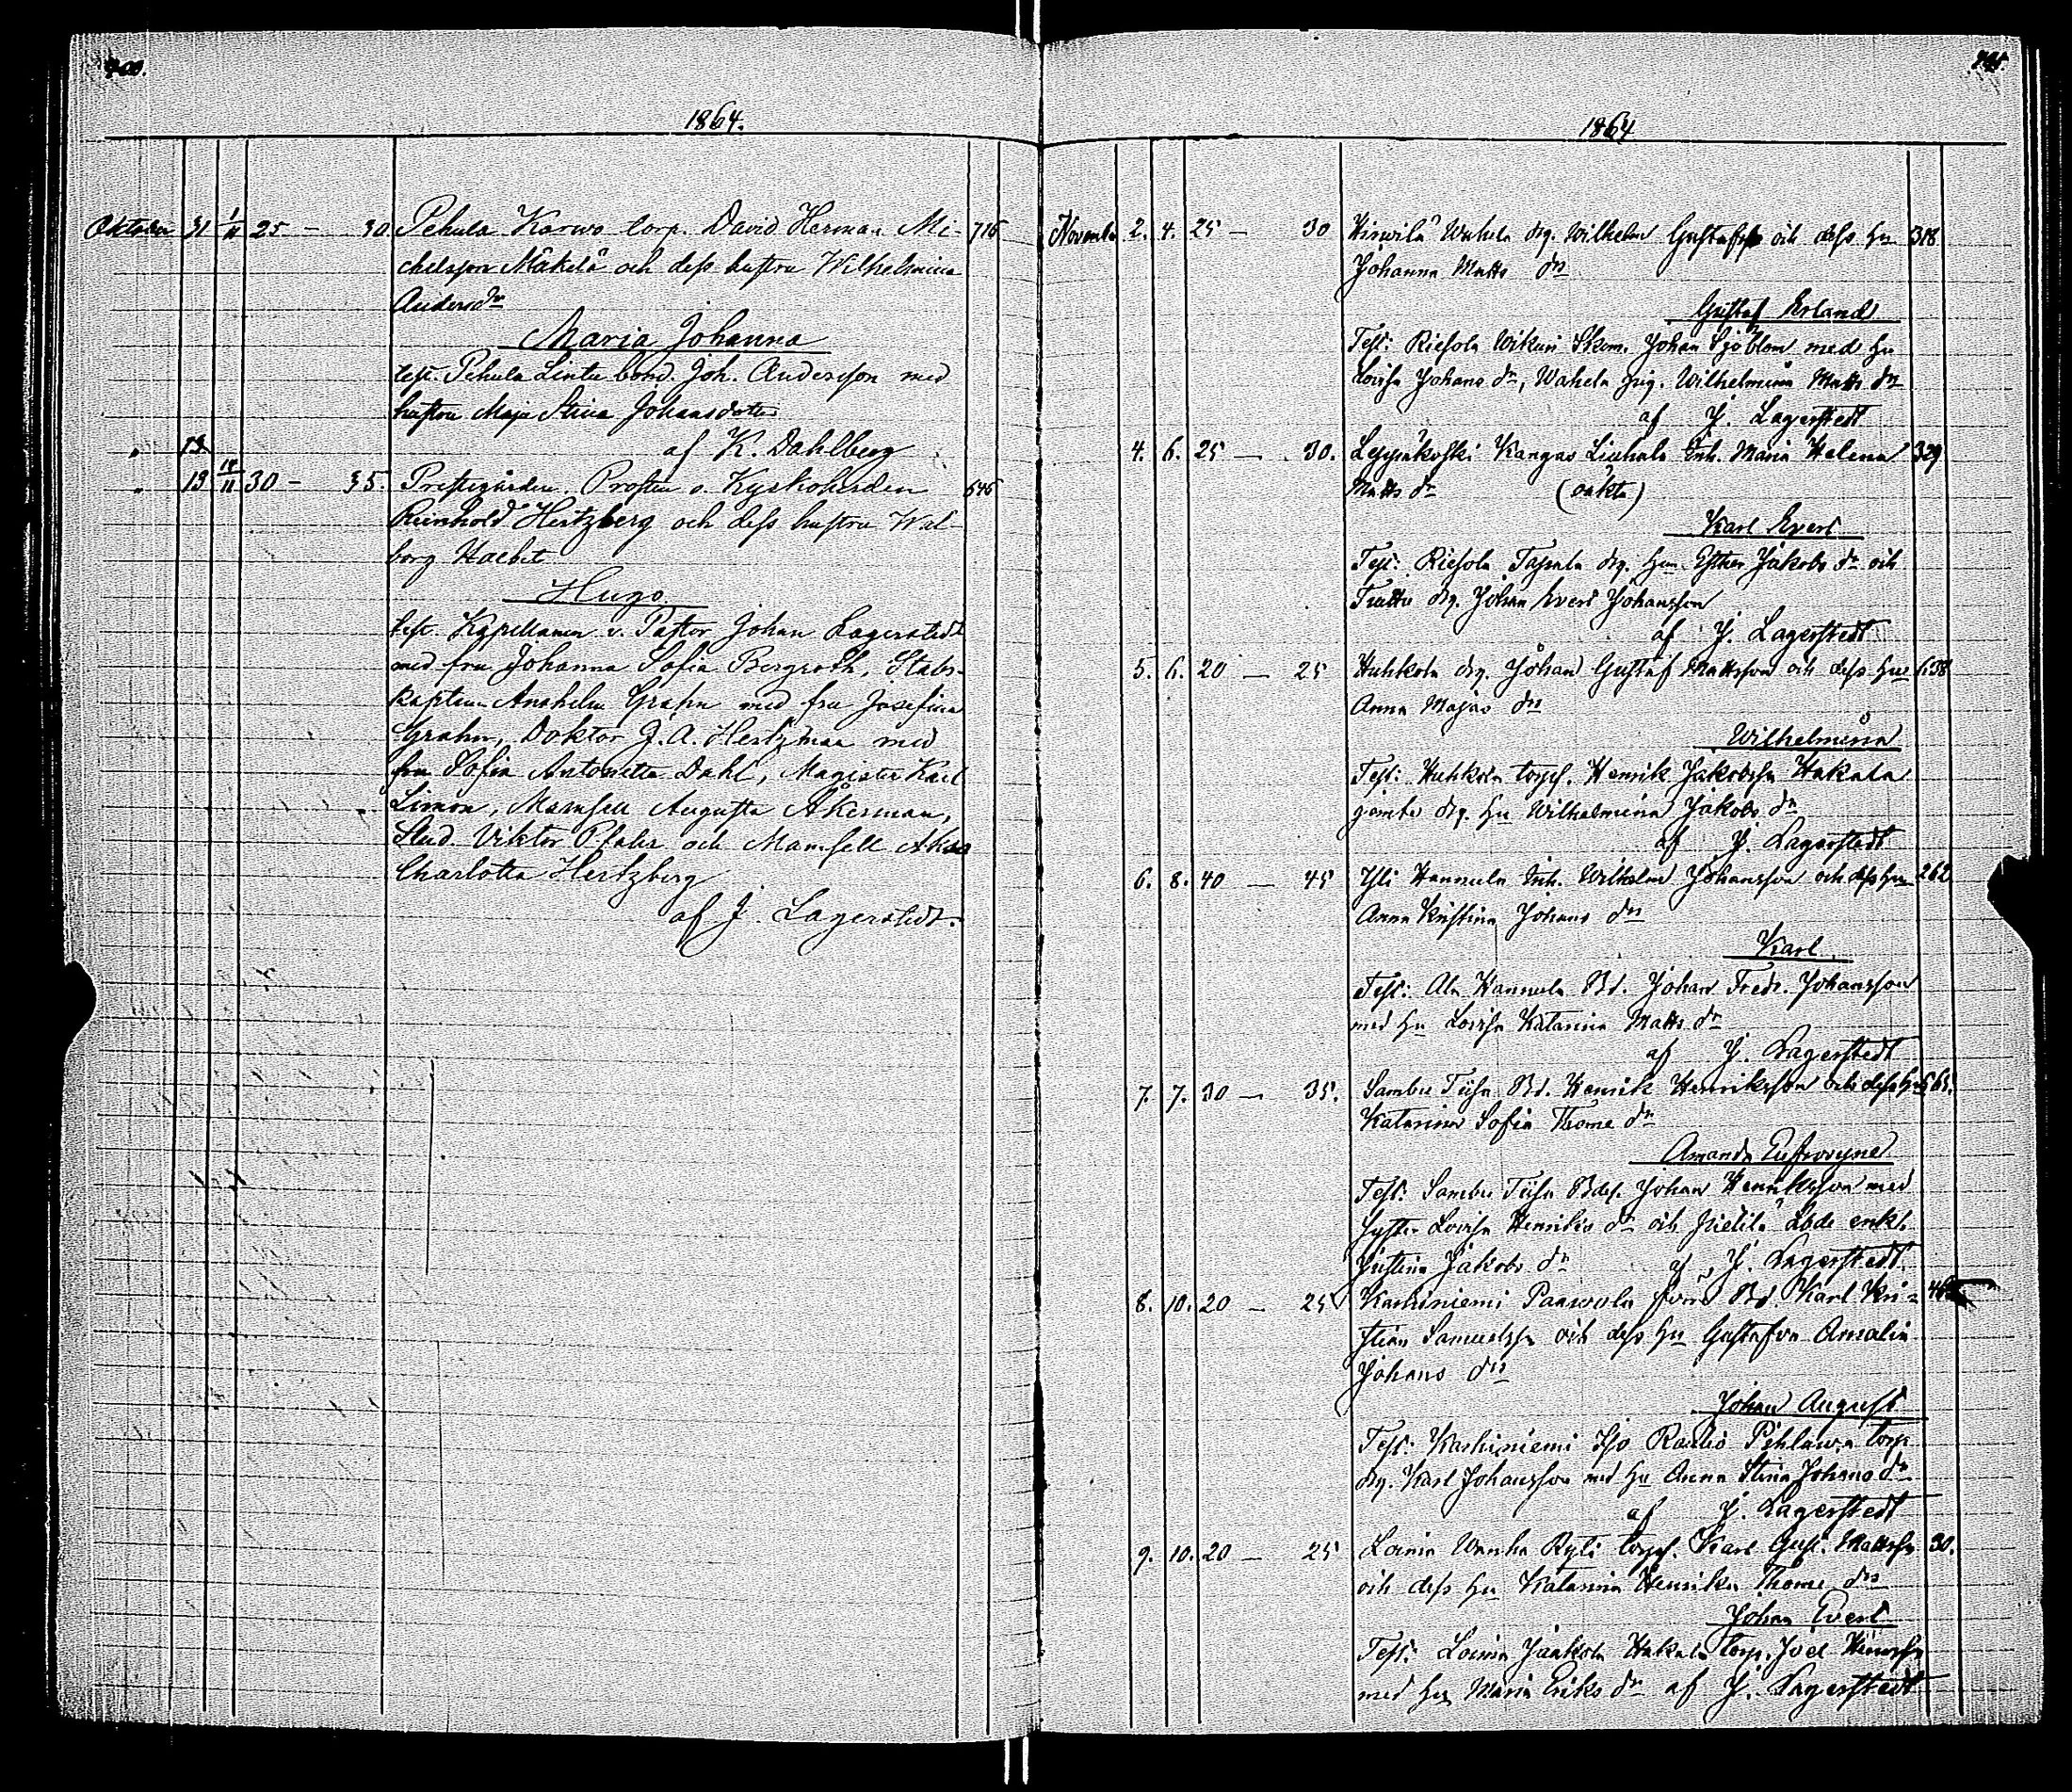 1864.
Oktober 31 1/11 25 - 30. Pehula Karwo torp. David Herman Mi- 716
chelsson Mäkelä och dess hustru Wilhelmina
Andersdr
Maria Johanna
test. Pehula Lintu bond. Joh. Andersson med
hustru Maja Stina Johansdotter
af K. Dahlberg
" 13
" 19 14/11 30 - 35. Prestgården Prosten o. Kyrkoherden 546
Reinhold Hertzberg och dess hustru Wal-
borg
Hugo
test. Kapellanen v. Pastor Johan Lagerstedt
med fru Johanna Sofia Bergroth, Stabs-
kapten Anshelm Grahn med fru Josefina
Grahn, Doktor J. A. Hertzman med
fru Sofia Antonetta Dahl, Magister Karl
Limon, Mamsell Augusta Åkerman,
Stud. Viktor och Mamsell
Charlotta Hertzberg
af J. Lagerstedt.
1864
November 2. 4. 25 — 30 Wilhelm Gustafss. och dess hu 318
Johanna Matts dr
Gustaf Erland
Test: Riesola Johan Sjöblom med hu
Lovisa Johans dr, Wahela pig. Wilhelmina Matts dr
af J. Lagerstedt
4. 6. 25 — 30. Leppäkoski Kangas Liuhala Inh. Maria Helena 329
Matts dr (oäkta)
Karl Evert
Test: Riesola drg. hu Esther Jakobs dr och
drg. Johan Evert Johansson
af J. Lagerstedt
5. 6. 20 — 25 Huhkola drg. Johan Gustaf Mattsson och dess hu 638
Anna Majas dr
Wilhelmina
Test: Huhkola torp. Henrik Jakobsson Hakala
jemte drg. hu Wilhelmina Jakobs dr
af J. Lagerstedt
6. 8. 40 — 45 Hannula Inh. Wilhelm Johansson och dess hu 262
Anna Kristina Johans dr
Karl
Test: Ala Hannula Bd. Johan Fredr. Johansson
med hu Lovisa Katarina Matts dr
af J. Lagerstedt
7. 7. 30 — 35. Sambu Bd. Henrik Henriksson och dess hu 565.
Katarina Sofia Thome dr
Amanda Eufrosyne
Test: Sambu Bds. Johan Henriksson med
syster Lovisa Henriks dr och enk.
Justina Jakobs dr af J. Lagerstedt.
8. 10. 20 — 25 Karhiniemi Paawola förra Bd. Karl Kri-
stian Samuelss. och dess hu Gustafva Amalia
Johans dr
Johan August
Test: Karhiniemi Iso Raulio Pihlawa torp
drg. Karl Johansson med hu Anna Stina Johans dr
af J. Lagerstedt
9. 10. 20 — 25 Loima Wanha Ryti torp. Karl Gust. Mattss. 30.
och dess hu Katarina Henrika Thome dr
Johan Evert
Test: Loima Jaakola Hakala torp. Joel Henrss.
med hu Maria Eriks dr af J. Lagerstedt